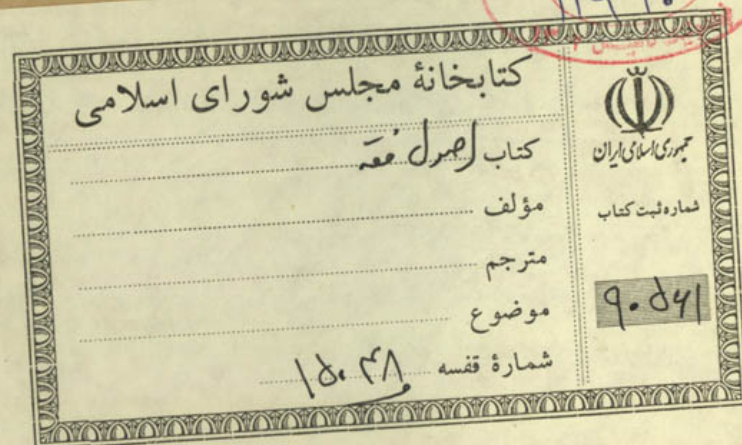 کتابخانهٔ مجلس شورای اسلامی
کتاب اصول فقه
مؤلف
مترجم
موضوع
شمارهٔ قفسه ۱۵۰۴۸
جمهوری اسلامی ایران
شماره ثبت کتاب
۹۰۵۷۱